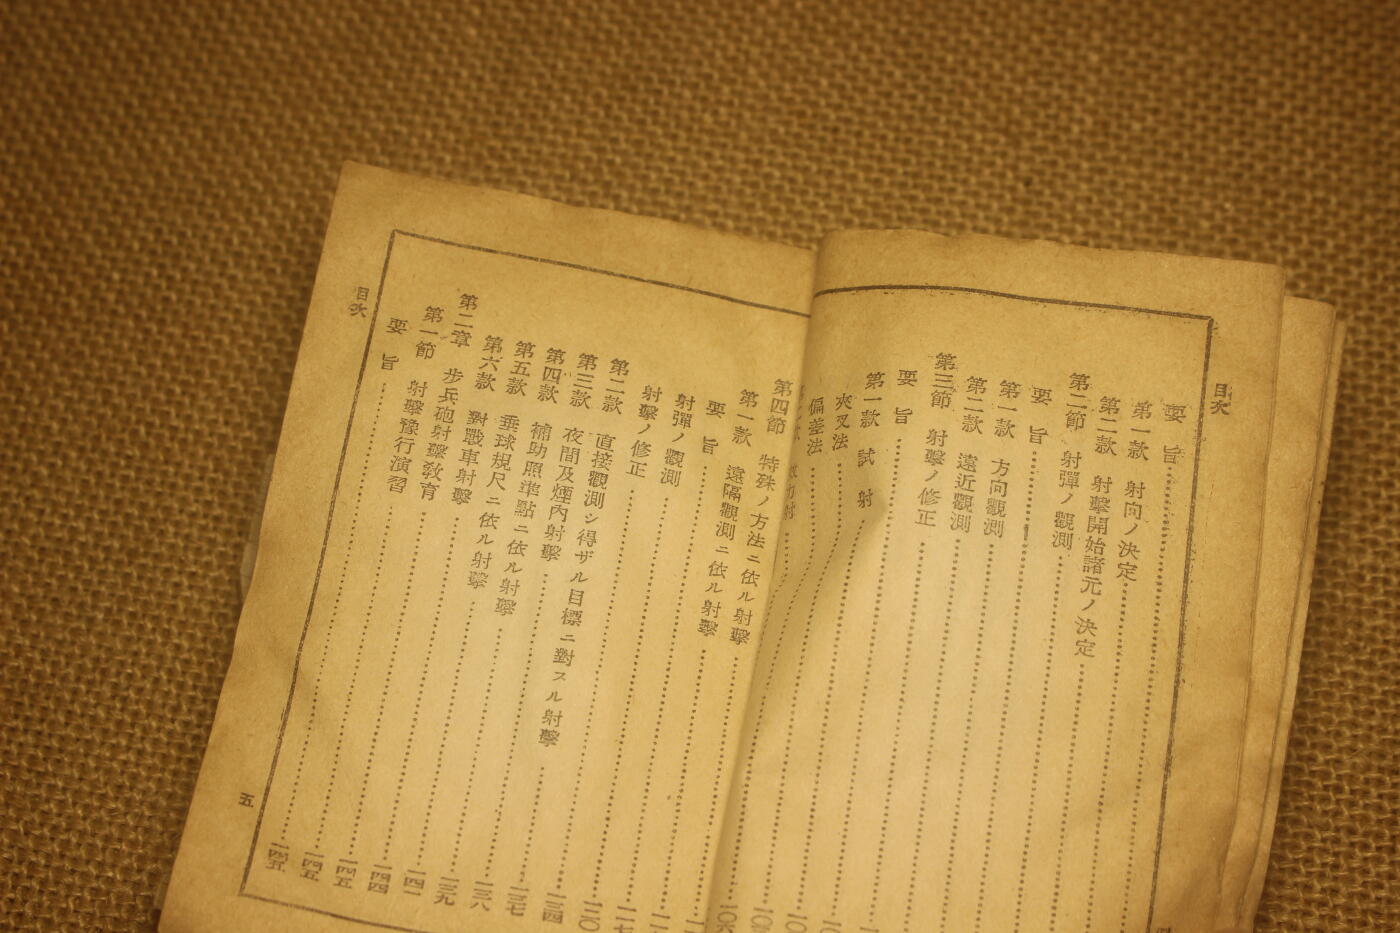 目次
要旨
第一款 射向ノ決定
第二款 射擊開始諸元ノ決定
第二節 射彈ノ觀測
要旨
第一款 方向觀測
第二款 遠近觀測
第三節 射擊ノ修正
要旨
第一款 試射
夾叉法
偏差法
第四節 特殊ノ方法ニ依ル射擊
第一款 遠隔觀測ニ依ル射擊
要旨
射彈ノ觀測
射擊ノ修正
第二款 直接觀測シ得ザル目標ニ對スル射擊
第三款 夜間及煙內射擊 一三四
第四款 補助照準點ニ依ル射擊 一三七
第五款 垂球規尺ニ依ル射擊 一三八
第六款 對戰車射擊 一三九
第二章 步兵砲射擊敎育
第一節 射擊豫行演習
要旨 一四五
目次
五